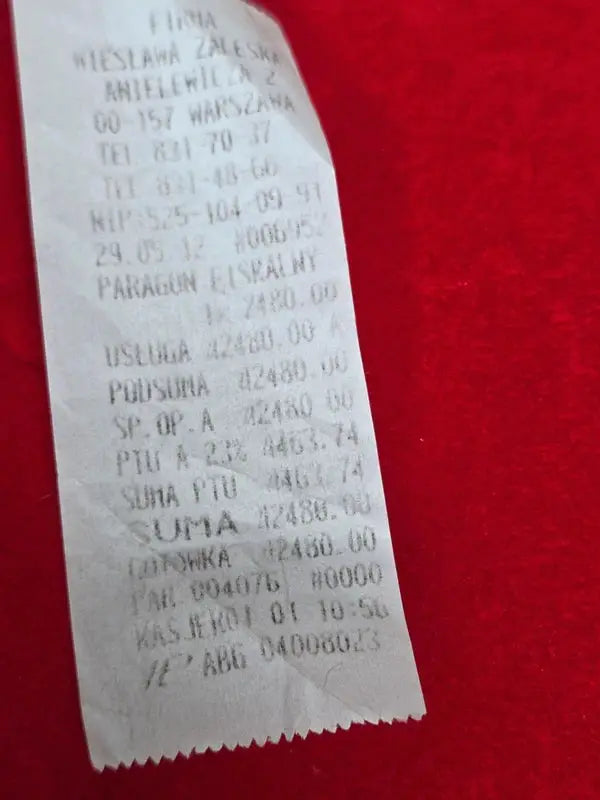 FIRMA
WIESŁAWA ZALESKA
ANIELEWICZA 2
00-157 WARSZAWA
TEL 831 70 37
TEL 831-48-66
NIP:525-104-09-91
29.05.12 #006952
PARAGON FISKALNY
1x 2480.00
USŁUGA #2480.00 A
PODSUMA #2480.00
SP.OP.A #2480.00
PTU A 23% #463.74
SUMA PTU #463.74
SUMA #2480.00
GOTÓWKA #2480.00
PAR 004076 #0000
KASJER01 01 10:56
ABG 04008023